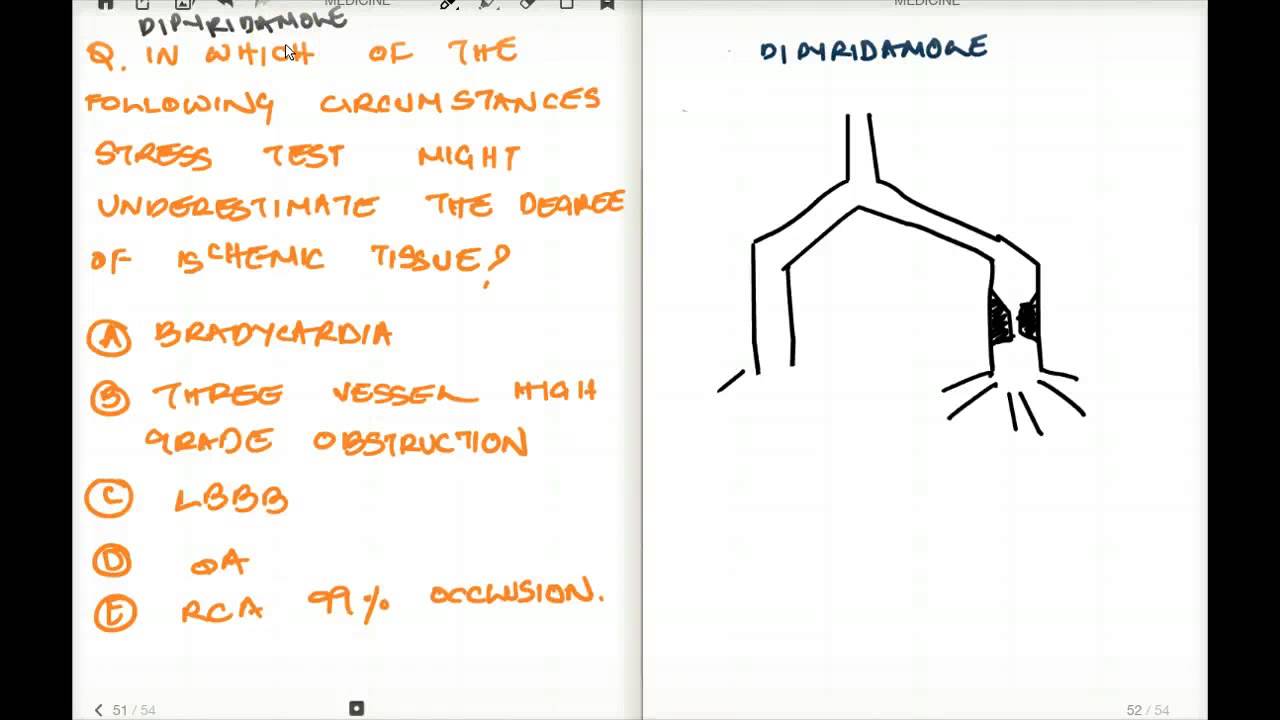 MEDICINE
MEDICINE
DIPYRIDAMOLE
Q. IN WHICH OF THE
FOLLOWING CIRCUMSTANCES
STRESS TEST MIGHT
UNDERESTIMATE THE DEGREE
OF ISCHEMIC TISSUE?
A BRADYCARDIA
B THREE VESSEL HIGH
GRADE OBSTRUCTION
C LBBB
D OA
E RCA 99% OCCLUSION.
51 / 54
DIPYRIDAMOLE
52 / 54